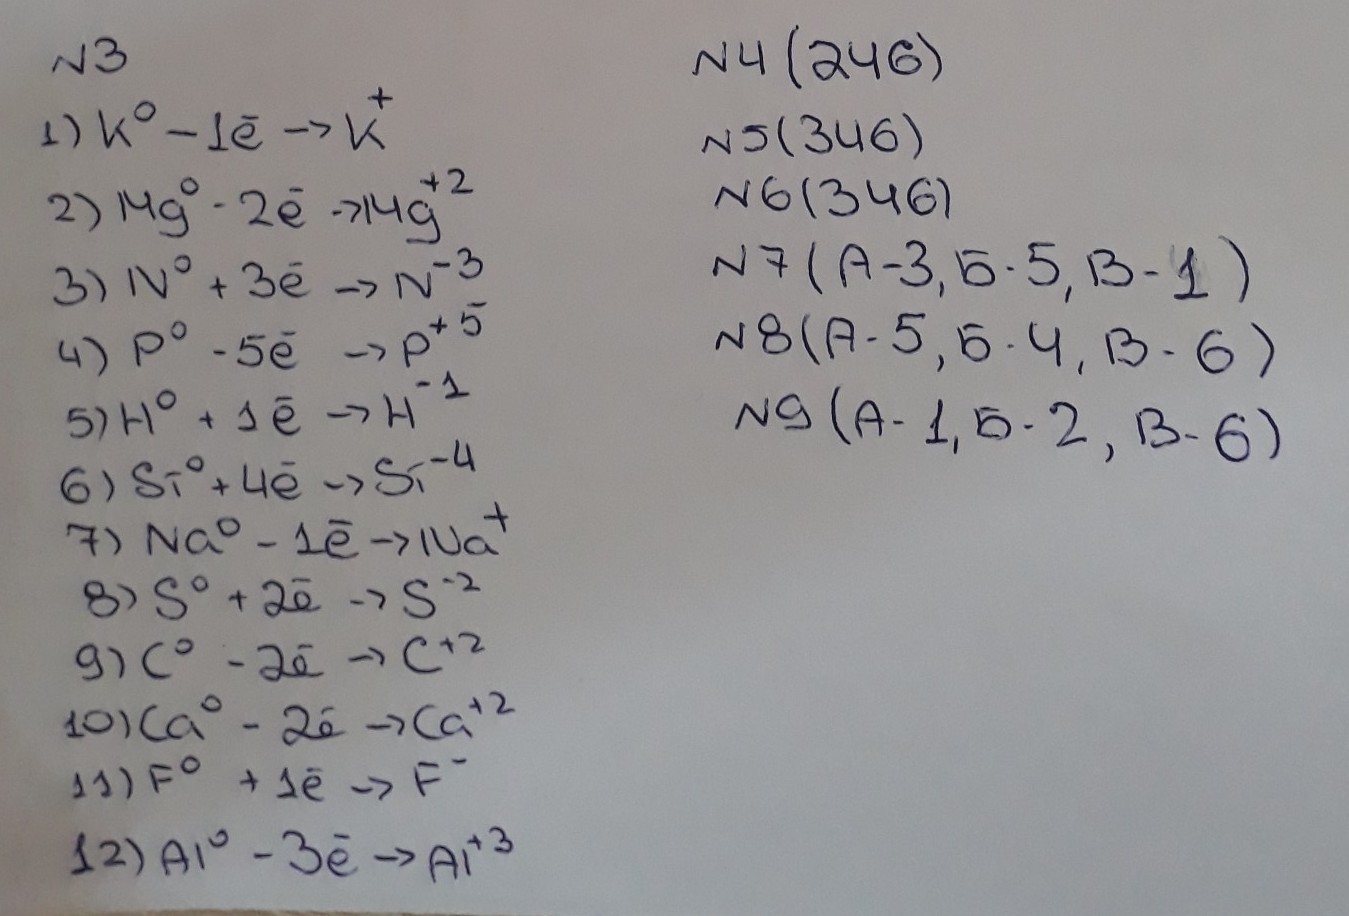 N3
1) K⁰ - 1ē → K⁺
2) Mg⁰ - 2ē → Mg⁺²
3) N⁰ + 3ē → N⁻³
4) P⁰ - 5ē → P⁺⁵
5) H⁰ + 1ē → H⁻¹
6) Si⁰ + 4ē → Si⁻⁴
7) Na⁰ - 1ē → Na⁺
8) S⁰ + 2ē → S⁻²
9) C⁰ - 2ē → C⁺²
10) Ca⁰ - 2ē → Ca⁺²
11) F⁰ + 1ē → F⁻
12) Al⁰ - 3ē → Al⁺³
N4 (246)
N5 (346)
N6 (346)
N7 (А-3, Б-5, В-1)
N8 (А-5, Б-4, В-6)
N9 (А-1, Б-2, В-6)